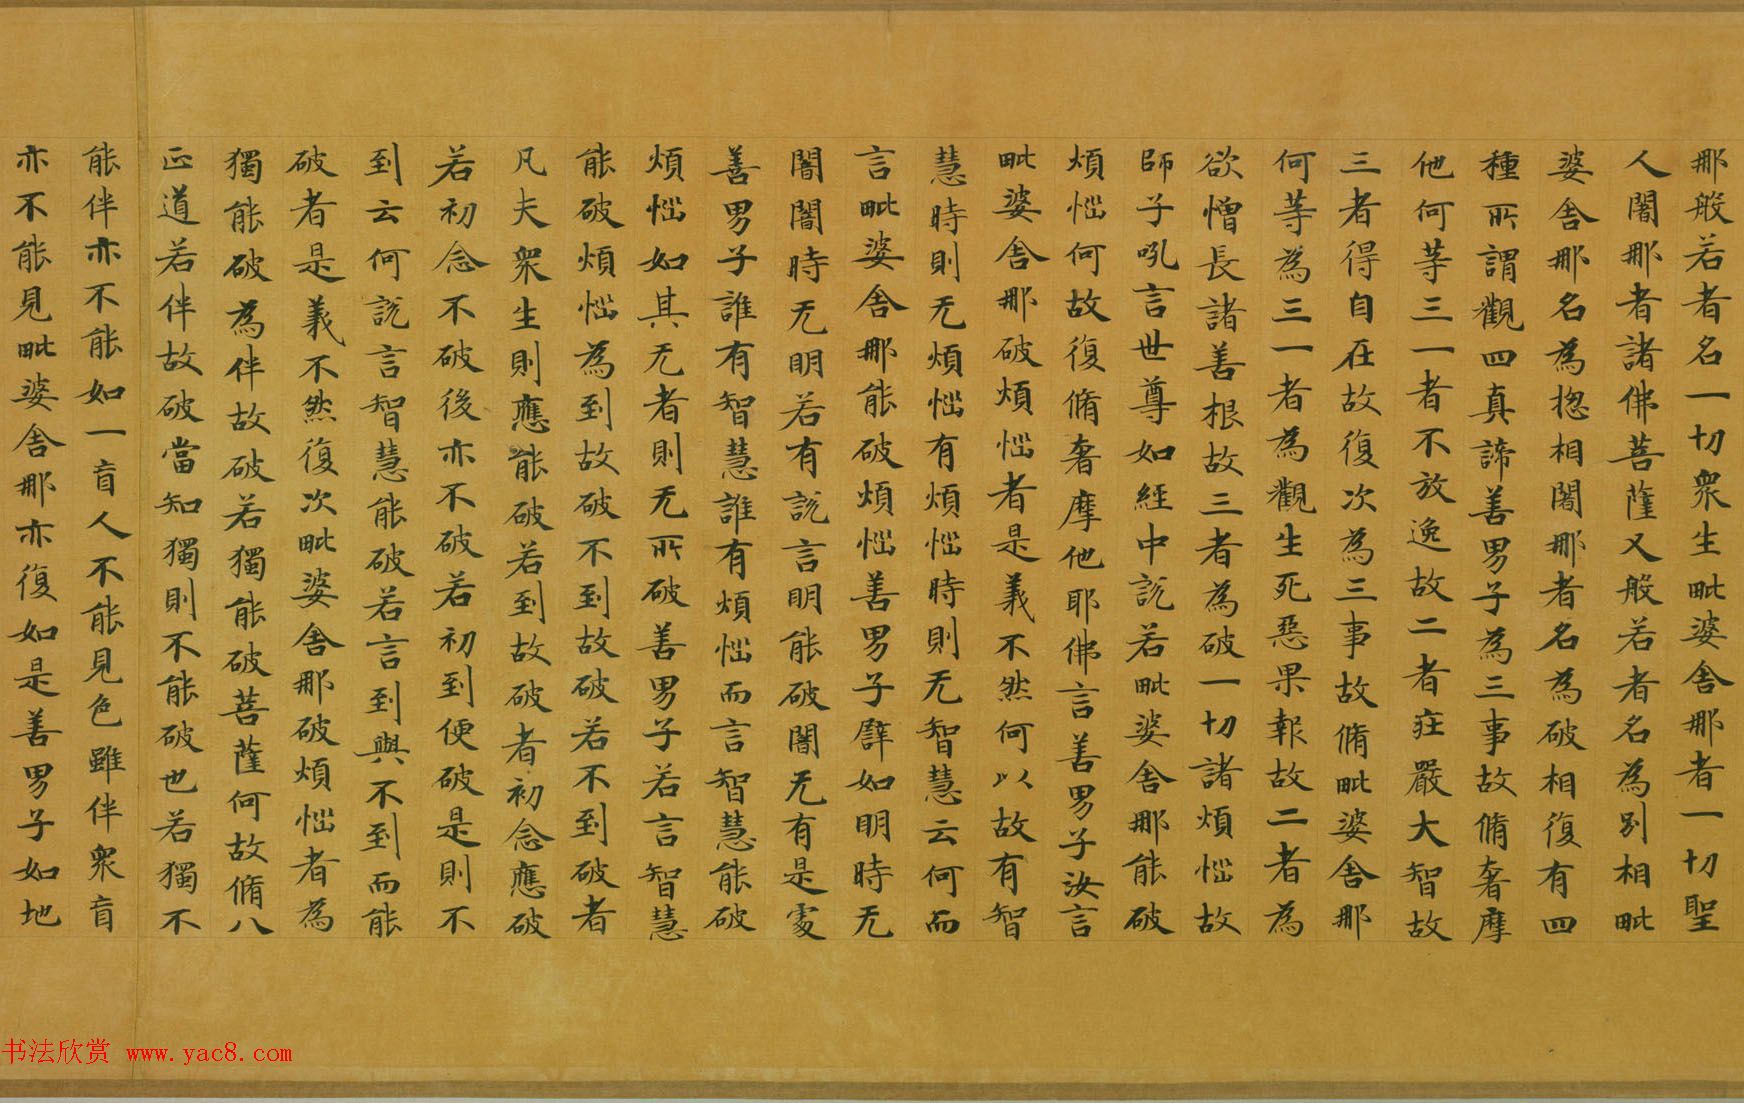 那般若者名一切衆生毗婆舍那者一切聖
人闍那者諸佛菩薩又般若者名為别相毗
婆舍那名為惣相闍那者名為破相復有四
種所謂觀四真諦善男子為三事故脩奢摩
他何等三一者不放逸故二者莊嚴大智故
三者得自在故復次為三事故脩毗婆舍那
何等為三一者為觀生死惡果報故二者為
欲憎長諸善根故三者為破一切諸煩惱故
師子吼言世尊如經中説若毗婆舍那能破
煩惱何故復脩奢摩他耶佛言善男子汝言
毗婆舍那破煩惱者是義不然何以故有智
慧時則无煩惱有煩惱時則无智慧云何而
言毗婆舍那能破煩惱善男子譬如明時无
闇闇時无明若有説言明能破闇无有是處
善男子誰有智慧誰有煩惱而言智慧能破
煩惱如其无者則无所破善男子若言智慧
能破煩惱為到故破不到故破若不到破者
凡夫衆生則應能破若到故破者初念應破
若初念不破後亦不破若初到便破是則不
到云何説言智慧能破若言到與不到而能
破者是義不然復次毗婆舍那破煩惱者為
獨能破為伴故破若獨能破菩薩何故脩八
正道若伴故破當知獨則不能破也若獨不
能伴亦不能如一盲人不能見色雖伴衆盲
亦不能見毗婆舍那亦復如是善男子如地
书法欣赏 www.yac8.com